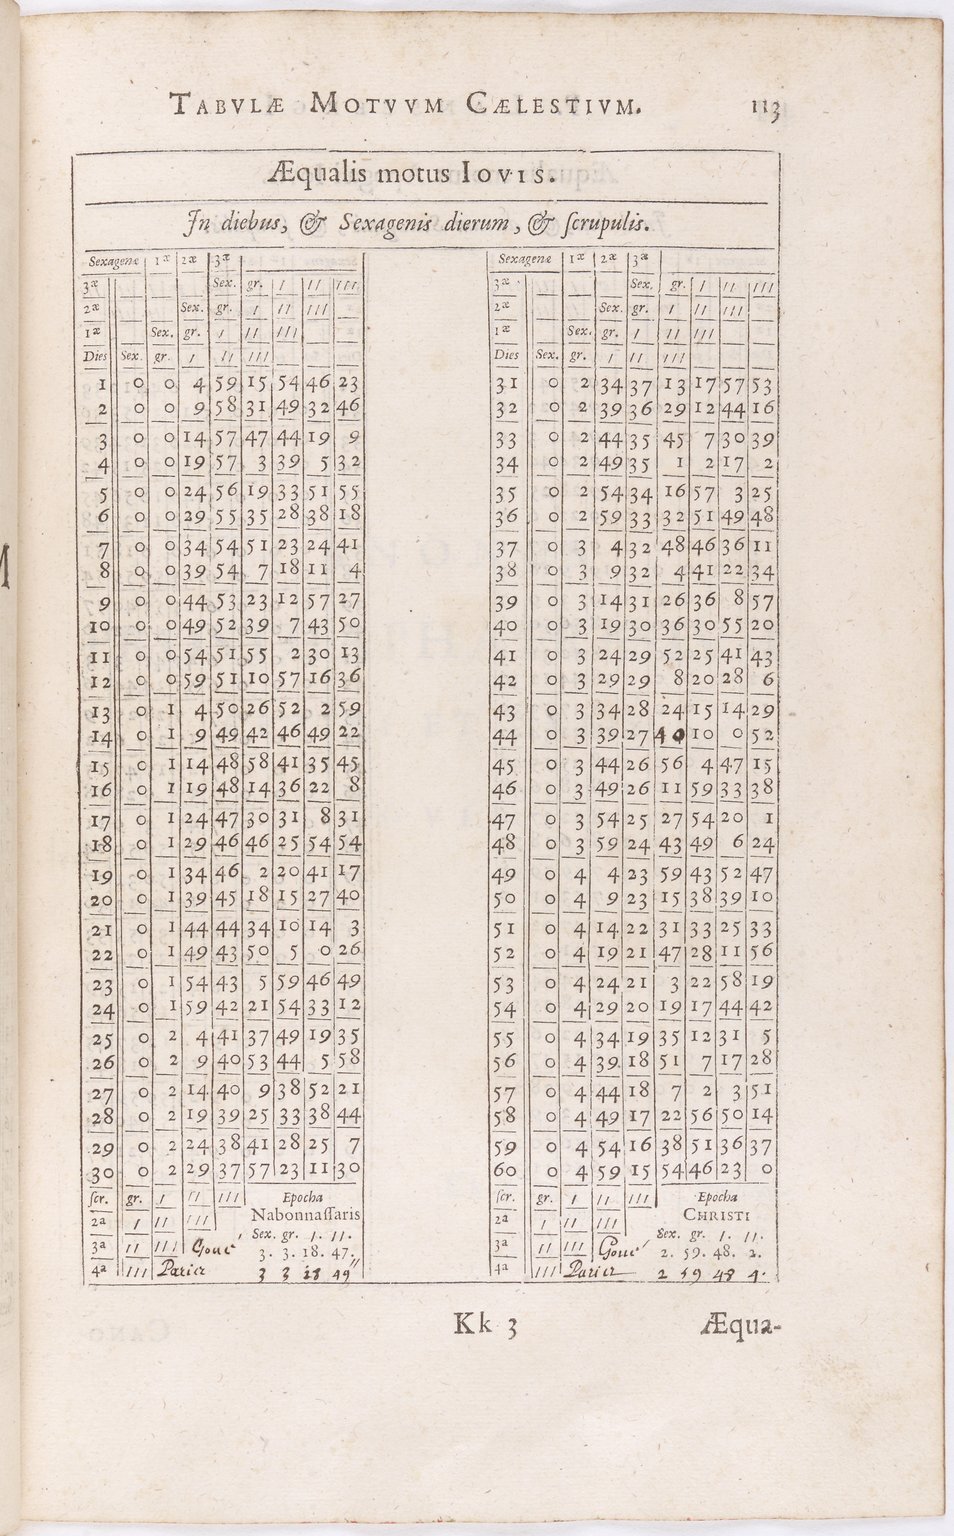 TABVLÆ MOTVVM CÆLESTIVM. 113
Æqualis motus IOVIS.
In diebus, & Sexagenis dierum, & ſcrupulis.
Sexagenæ 1æ 2æ 3æ
3æ Sex. gr. / // ///
2æ Sex. gr. / // ///
1æ Sex. gr. / // ///
Dies Sex. gr. / // ///
1 0 0 4 59 15 54 46 23
2 0 0 9 58 31 49 32 46
3 0 0 14 57 47 44 19 9
4 0 0 19 57 3 39 5 32
5 0 0 24 56 19 33 51 55
6 0 0 29 55 35 28 38 18
7 0 0 34 54 51 23 24 41
8 0 0 39 54 7 18 11 4
9 0 0 44 53 23 12 57 27
10 0 0 49 52 39 7 43 50
11 0 0 54 51 55 2 30 13
12 0 0 59 51 10 57 16 36
13 0 1 4 50 26 52 2 59
14 0 1 9 49 42 46 49 22
15 0 1 14 48 58 41 35 45
16 0 1 19 48 14 36 22 8
17 0 1 24 47 30 31 8 31
18 0 1 29 46 46 25 54 54
19 0 1 34 46 2 20 41 17
20 0 1 39 45 18 15 27 40
21 0 1 44 44 34 10 14 3
22 0 1 49 43 50 5 0 26
23 0 1 54 43 5 59 46 49
24 0 1 59 42 21 54 33 12
25 0 2 4 41 37 49 19 35
26 0 2 9 40 53 44 5 58
27 0 2 14 40 9 38 52 21
28 0 2 19 39 25 33 38 44
29 0 2 24 38 41 28 25 7
30 0 2 29 37 57 23 11 30
ſcr. gr. / // /// Epocha
2a / // /// Nabonnaſſaris
Sex. gr. /. //.
3a // /// Goue 3. 3. 18. 47.
4a /// Parier 3 3 18 49
Sexagenæ 1æ 2æ 3æ
3æ Sex. gr. / // ///
2æ Sex. gr. / // ///
1æ Sex. gr. / // ///
Dies Sex. gr. / // ///
31 0 2 34 37 13 17 57 53
32 0 2 39 36 29 12 44 16
33 0 2 44 35 45 7 30 39
34 0 2 49 35 1 2 17 2
35 0 2 54 34 16 57 3 25
36 0 2 59 33 32 51 49 48
37 0 3 4 32 48 46 36 11
38 0 3 9 32 4 41 22 34
39 0 3 14 31 26 36 8 57
40 0 3 19 30 36 30 55 20
41 0 3 24 29 52 25 41 43
42 0 3 29 29 8 20 28 6
43 0 3 34 28 24 15 14 29
44 0 3 39 27 40 10 0 52
45 0 3 44 26 56 4 47 15
46 0 3 49 26 11 59 33 38
47 0 3 54 25 27 54 20 1
48 0 3 59 24 43 49 6 24
49 0 4 4 23 59 43 52 47
50 0 4 9 23 15 38 39 10
51 0 4 14 22 31 33 25 33
52 0 4 19 21 47 28 11 56
53 0 4 24 21 3 22 58 19
54 0 4 29 20 19 17 44 42
55 0 4 34 19 35 12 31 5
56 0 4 39 18 51 7 17 28
57 0 4 44 18 7 2 3 51
58 0 4 49 17 22 56 50 14
59 0 4 54 16 38 51 36 37
60 0 4 59 15 54 46 23 0
ſcr. gr. / // /// Epocha
2a / // /// CHRISTI
Sex. gr. /. //.
3a // /// Goue 2. 59. 48. 2.
4a /// Parier 2 59 48 4.
Kk 3 Æqua-